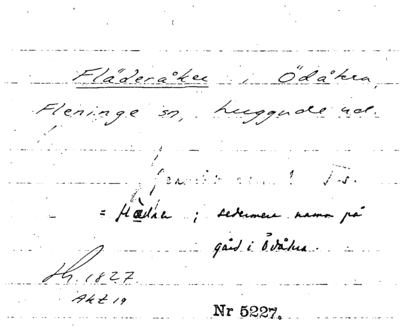 Fläderåker i Ödåkra,
Fleninge sn, Luggude hd.
= flädra ; sedermera namn på
gård i Ödåkra.
1827
Akt 19
Nr 5227.